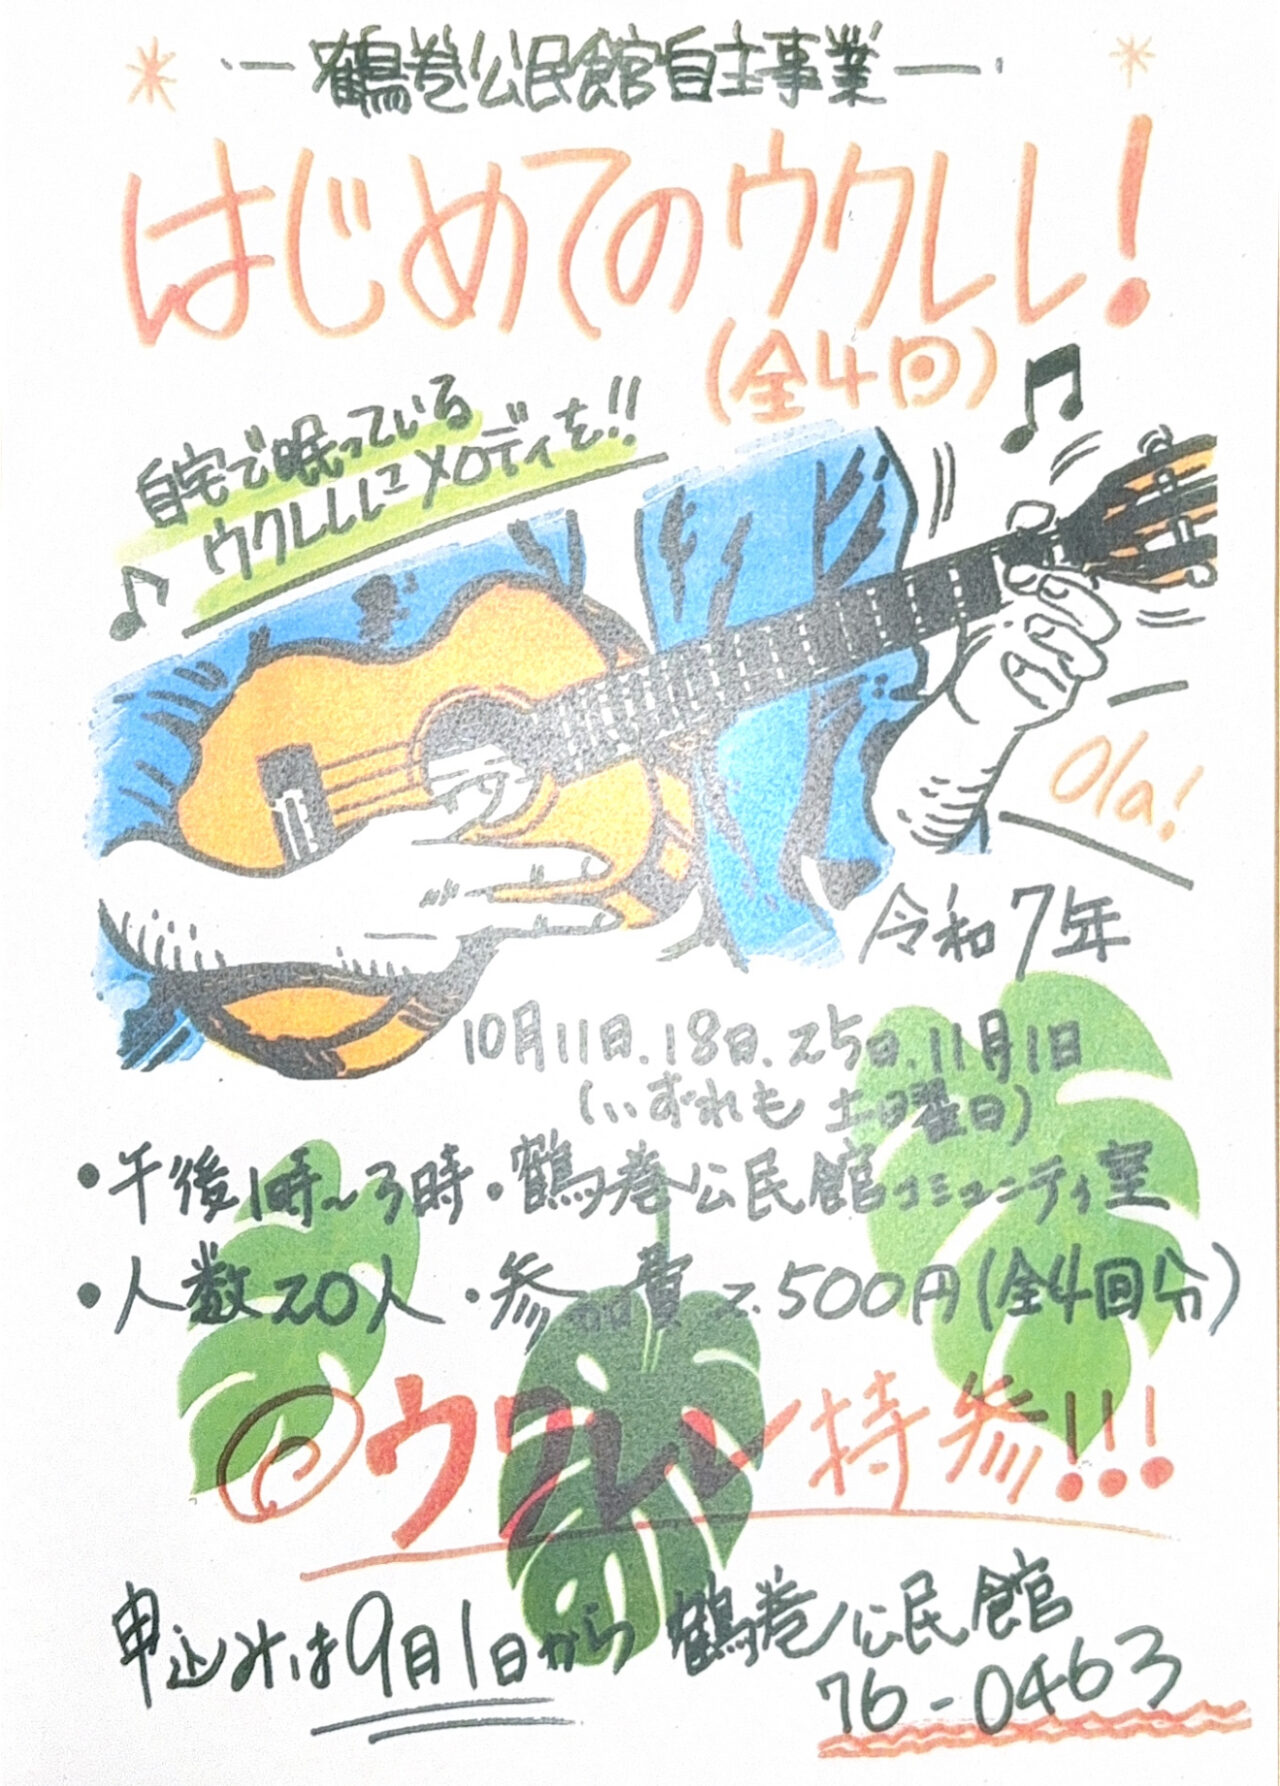 ― 鶴巻公民館自主事業 ―
はじめてのウクレレ!
(全4回)
自宅で眠っている
ウクレレにメロディを!!
Ola!
令和7年
10月11日.18日.25日.11月1日
(いずれも 土曜日)
・午後1時~3時・鶴巻公民館コミュニティ室
・人数20人・参加費 2.500円(全4回分)
ウクレレ持参!!!
申込みは9月1日から 鶴巻公民館
76-0463